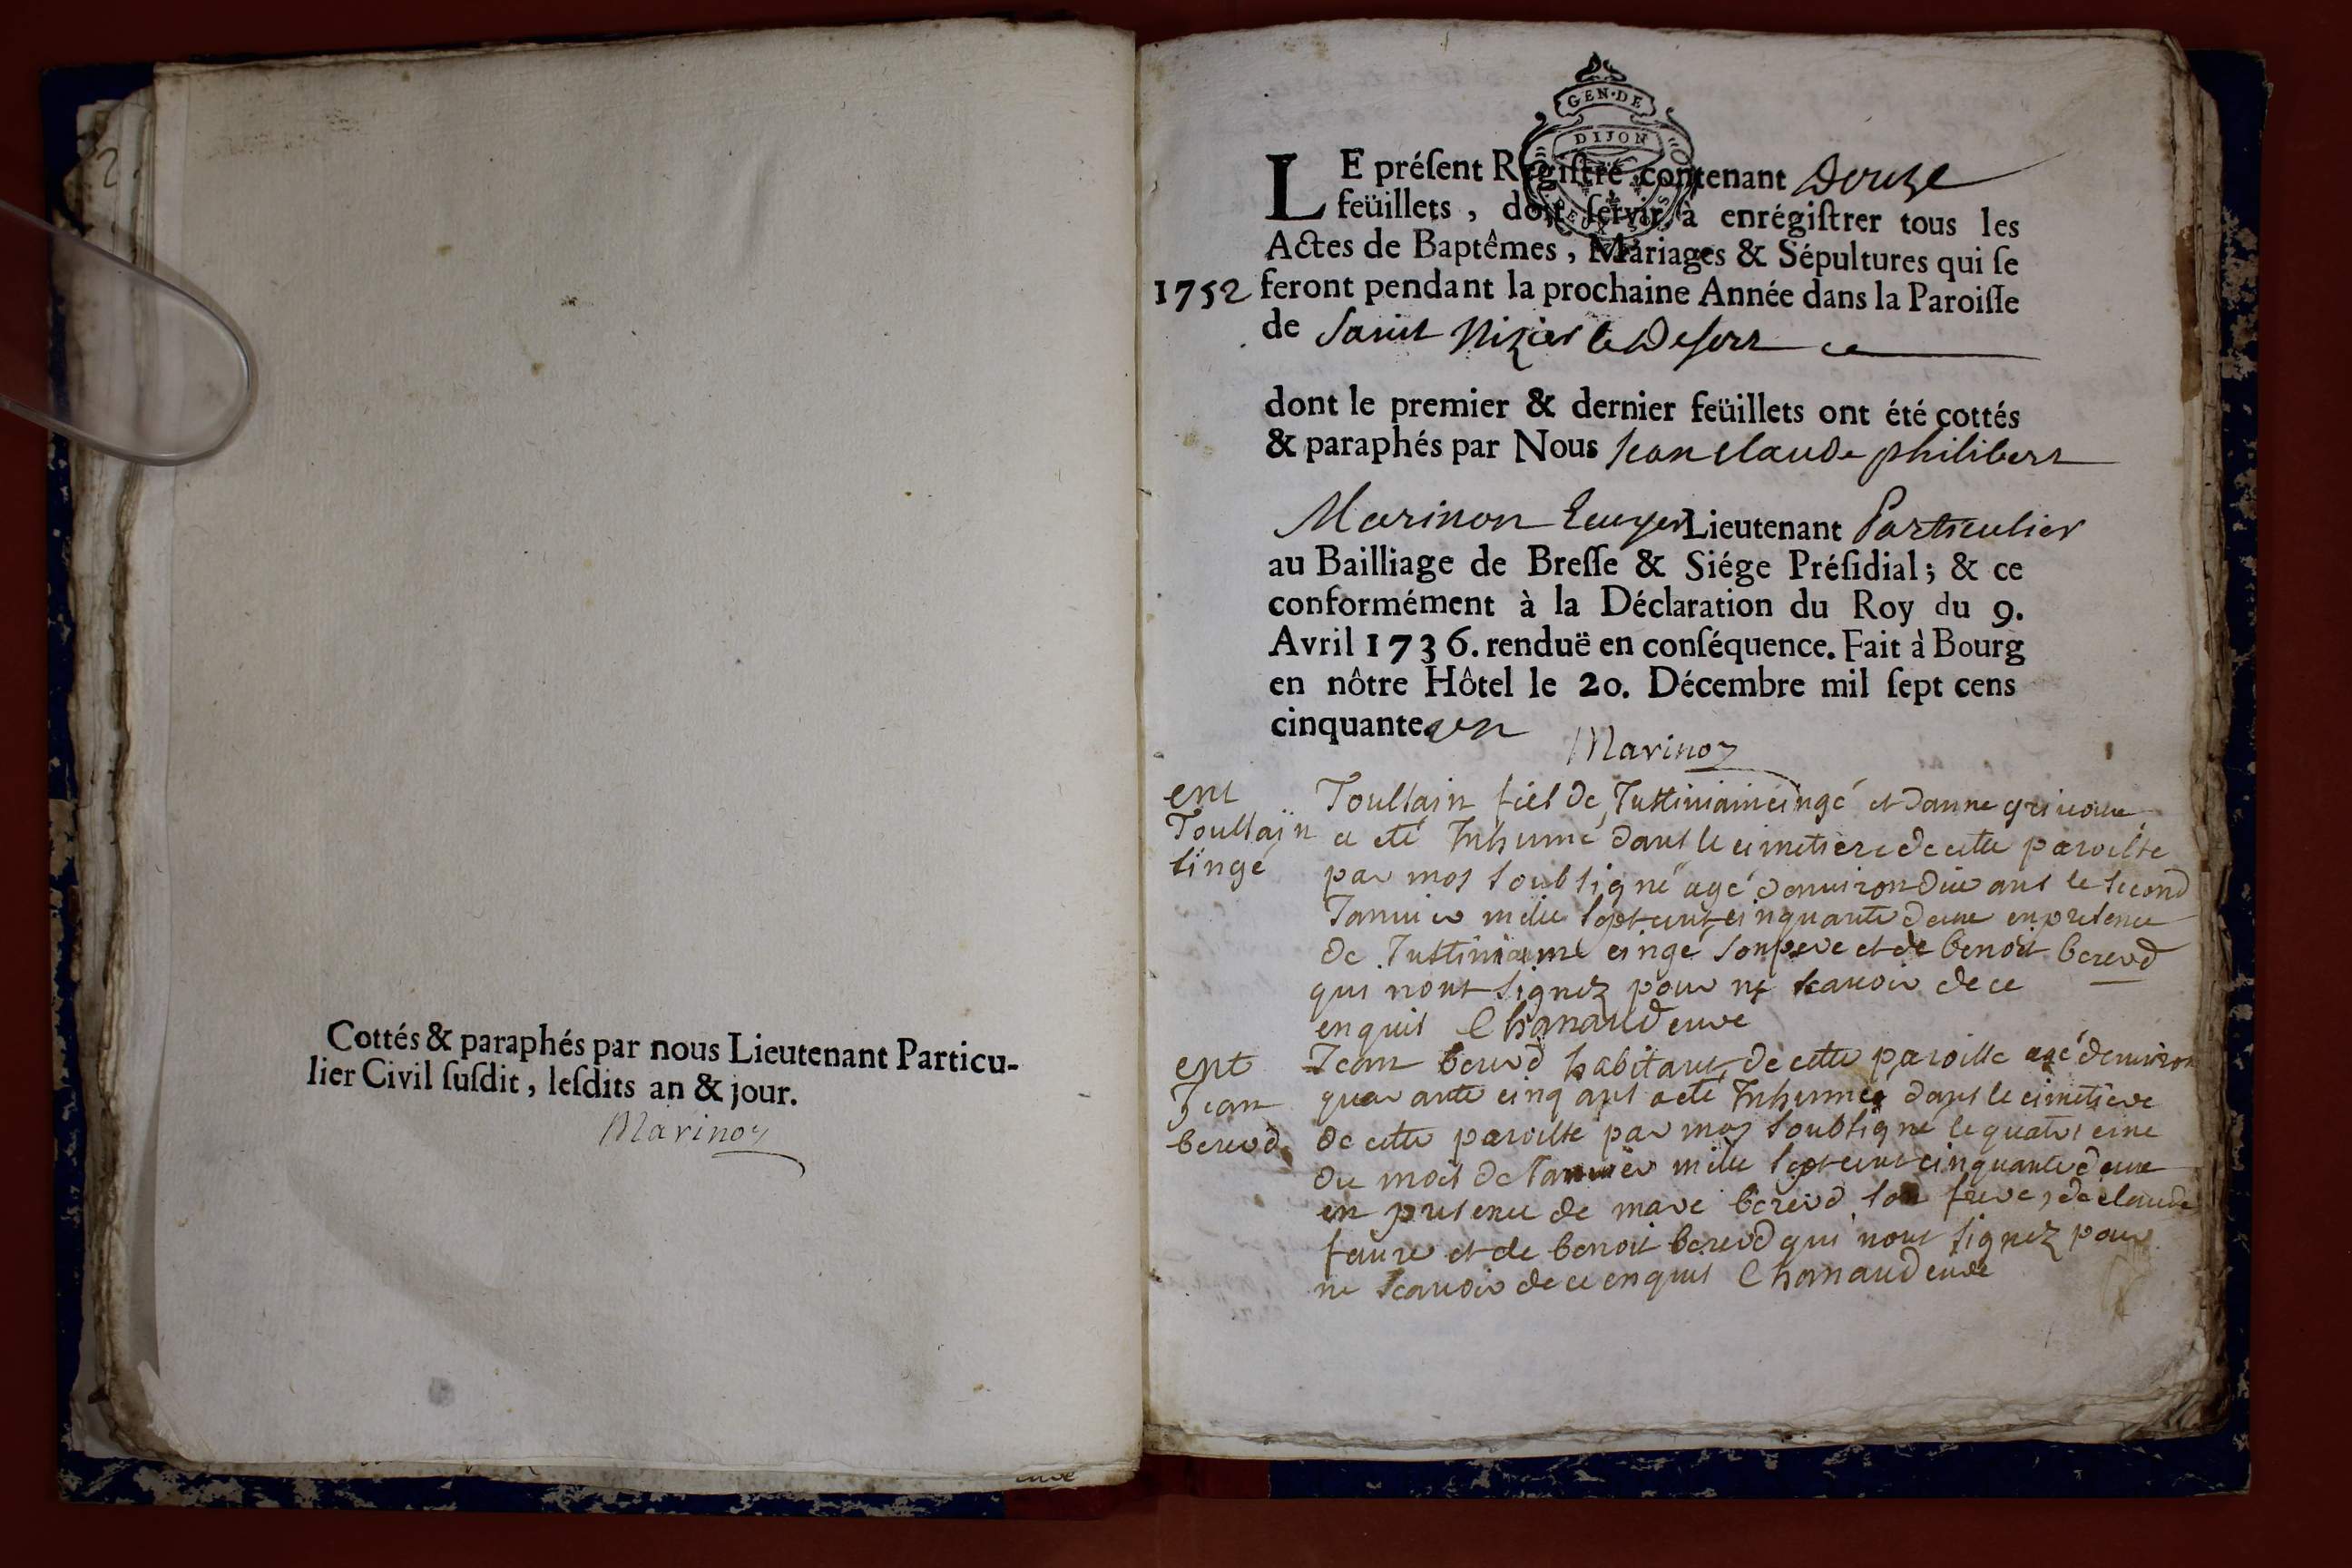 Cottés & paraphés par nous Lieutenant Particu-
lier Civil ſuſdit, leſdits an & jour.
Marinon
GEN·DE
DIJON
LE préſent Regiſtre contenant Douze
feüillets, doit ſervir à enrégiſtrer tous les
Actes de Baptêmes, Mariages & Sépultures qui ſe
1752 feront pendant la prochaine Année dans la Paroiſſe
de Saint Nizier le Desert
dont le premier & dernier feüillets ont été cottés
& paraphés par Nous Jean Claude philibert
Marinon Ecuyer Lieutenant Particulier
au Bailliage de Breſſe & Siége Préſidial; & ce
conformément à la Déclaration du Roy du 9.
Avril 1736. renduë en conſéquence. Fait à Bourg
en nôtre Hôtel le 20. Décembre mil ſept cens
cinquante un
Marinon
ent
Toussain
singé
Toussain fils de Justiniain cingé et danne
a eté Inhumé dans le cimetiere de cette paroisse
par moy soubsigné agé denviron dix ans le second
Janvier mille sept cent cinquante deux en presence
de Justiniaine cingé son pere et de benoit bererd
qui nont signez pour ne scavoir de ce
enquis Chanaud curé
ent
Jean
bererd
Jean bererd habitant de cette paroisse agé denviron
quarante cinq ans a eté Inhumé dans le cimetiere
de cette paroisse par moy soubsigné le
du mois de Janvier mille sept cent cinquante deux
en presence de marc bererd son frere, de claude
faure et de benoit bererd qui nont signez pour
ne scavoir de ce enquis Chanaud curé